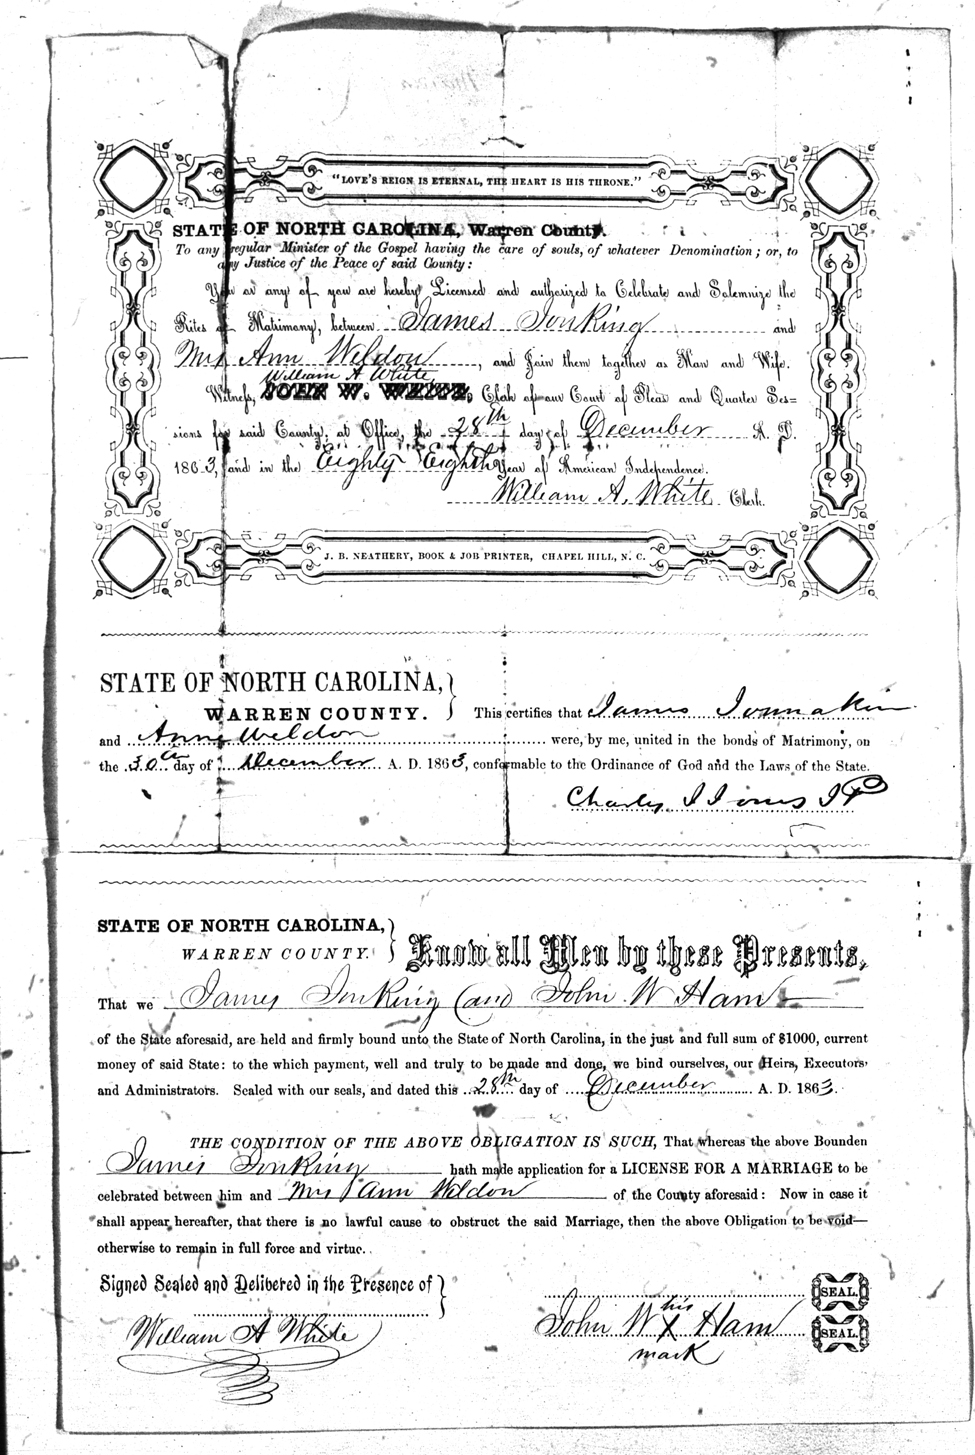 "LOVE'S REIGN IS ETERNAL, THE HEART IS HIS THRONE."
STATE OF NORTH CAROLINA, Warren County.
To any regular Minister of the Gospel having the care of souls, of whatever Denomination; or, to
any Justice of the Peace of said County:
You or any of you are hereby Licensed and authorized to Celebrate and Solemnize the
Rites of Matrimony, between James Jonking and
Mrs Ann Weldon, and Join them together as Man and Wife.
William A White
Witness, JOHN W. WHITE, Clerk of our Court of Pleas and Quarter Ses-
sions for said County, at Office, the 28th day of December A. D.
1863, and in the Eighty Eighth Year of American Independence.
William A. White Clerk.
J. B. NEATHERY, BOOK & JOB PRINTER, CHAPEL HILL, N. C.
STATE OF NORTH CAROLINA,
WARREN COUNTY. This certifies that James Jonnakin
and Anne Weldon were, by me, united in the bonds of Matrimony, on
the 30th day of December A. D. 1863, conformable to the Ordinance of God and the Laws of the State.
Charles J Jones JP
STATE OF NORTH CAROLINA,
WARREN COUNTY. Know all Men by these Presents,
That we James Jonking and John W Ham
of the State aforesaid, are held and firmly bound unto the State of North Carolina, in the just and full sum of $1000, current
money of said State: to the which payment, well and truly to be made and done, we bind ourselves, our Heirs, Executors
and Administrators. Sealed with our seals, and dated this 28th day of December A. D. 1863.
THE CONDITION OF THE ABOVE OBLIGATION IS SUCH, That whereas the above Bounden
James Jonking hath made application for a LICENSE FOR A MARRIAGE to be
celebrated between him and Mrs Ann Weldon of the County aforesaid: Now in case it
shall appear hereafter, that there is no lawful cause to obstruct the said Marriage, then the above Obligation to be void—
otherwise to remain in full force and virtue.
Signed Sealed and Delibered in the Presence of
SEAL.
his
William A White John W X Ham SEAL.
mark